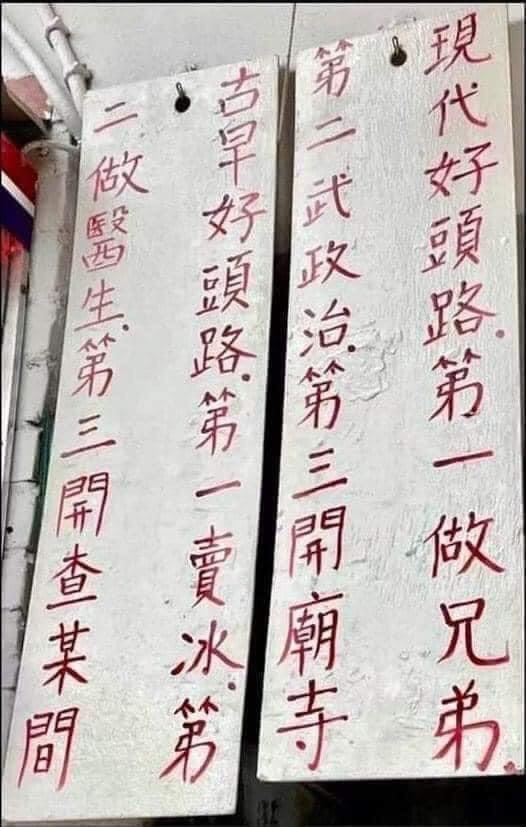 現代好頭路.第一做兄弟.
第二武政治.第三開廟寺
古早好頭路.第一賣冰.第
二做醫生.第三開查某間